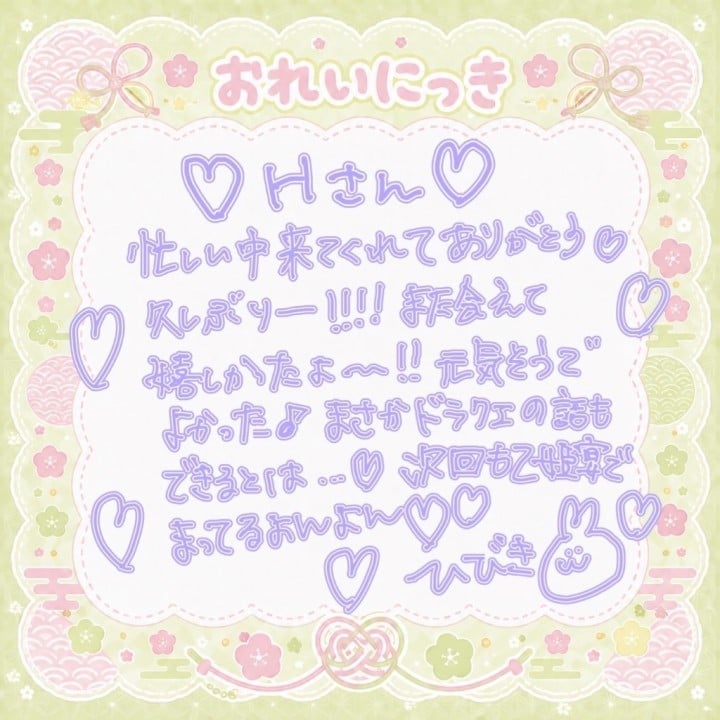 おれいにっき
♡Hさん♡
忙しい中来てくれてありがとう♡
久しぶりー!!!! また会えて
嬉しかったよ〜!! 元気そうで
よかった♪ まさかドラクエの話も
できるとは…♡ 次回もて姫宴で
まってるぉんよん♡♡
ひびき